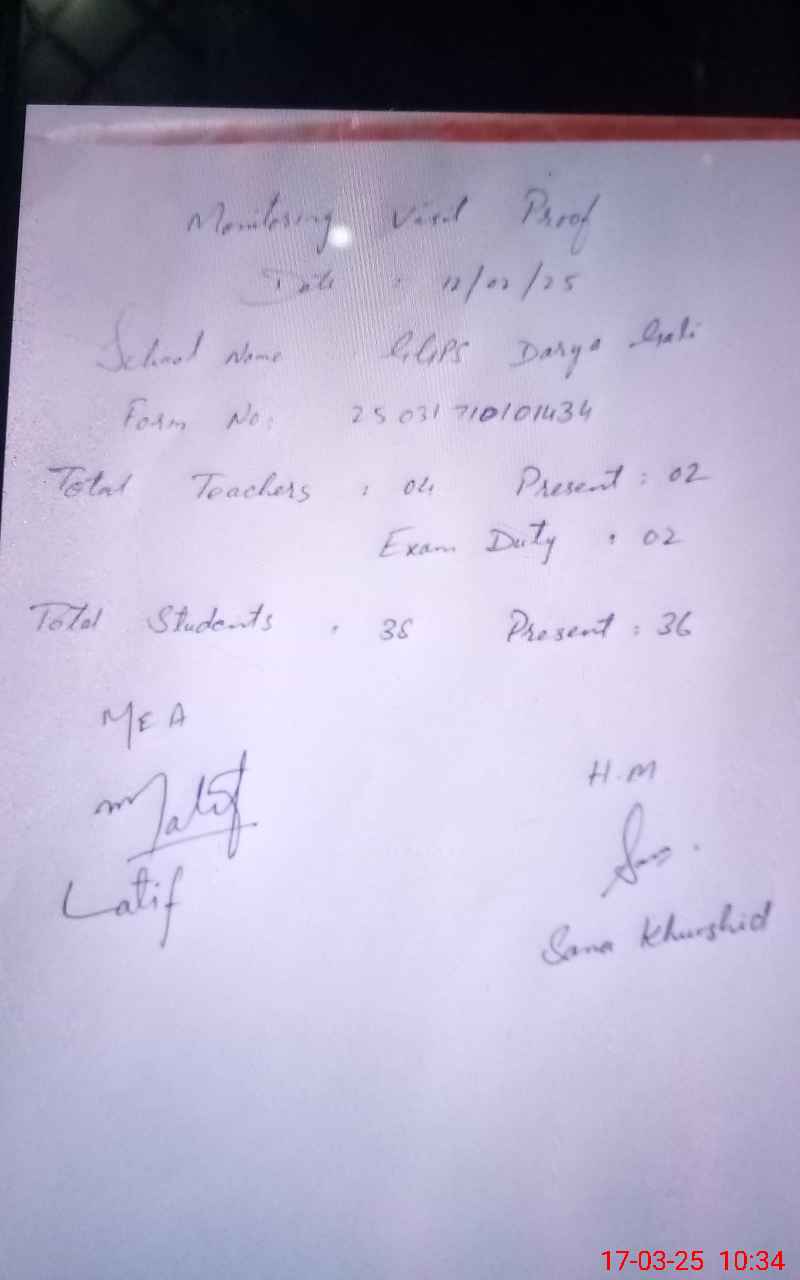 Monitoring Visit Proof
Date : 12/02/25
School Name : GGPS Darya Gali
Form No: 25031710101434
Total Teachers : 04 Present : 02
Exam Duty : 02
Total Students : 38 Present : 36
MEA
H.M
Latif
Sana Khurshid
17-03-25 10:34